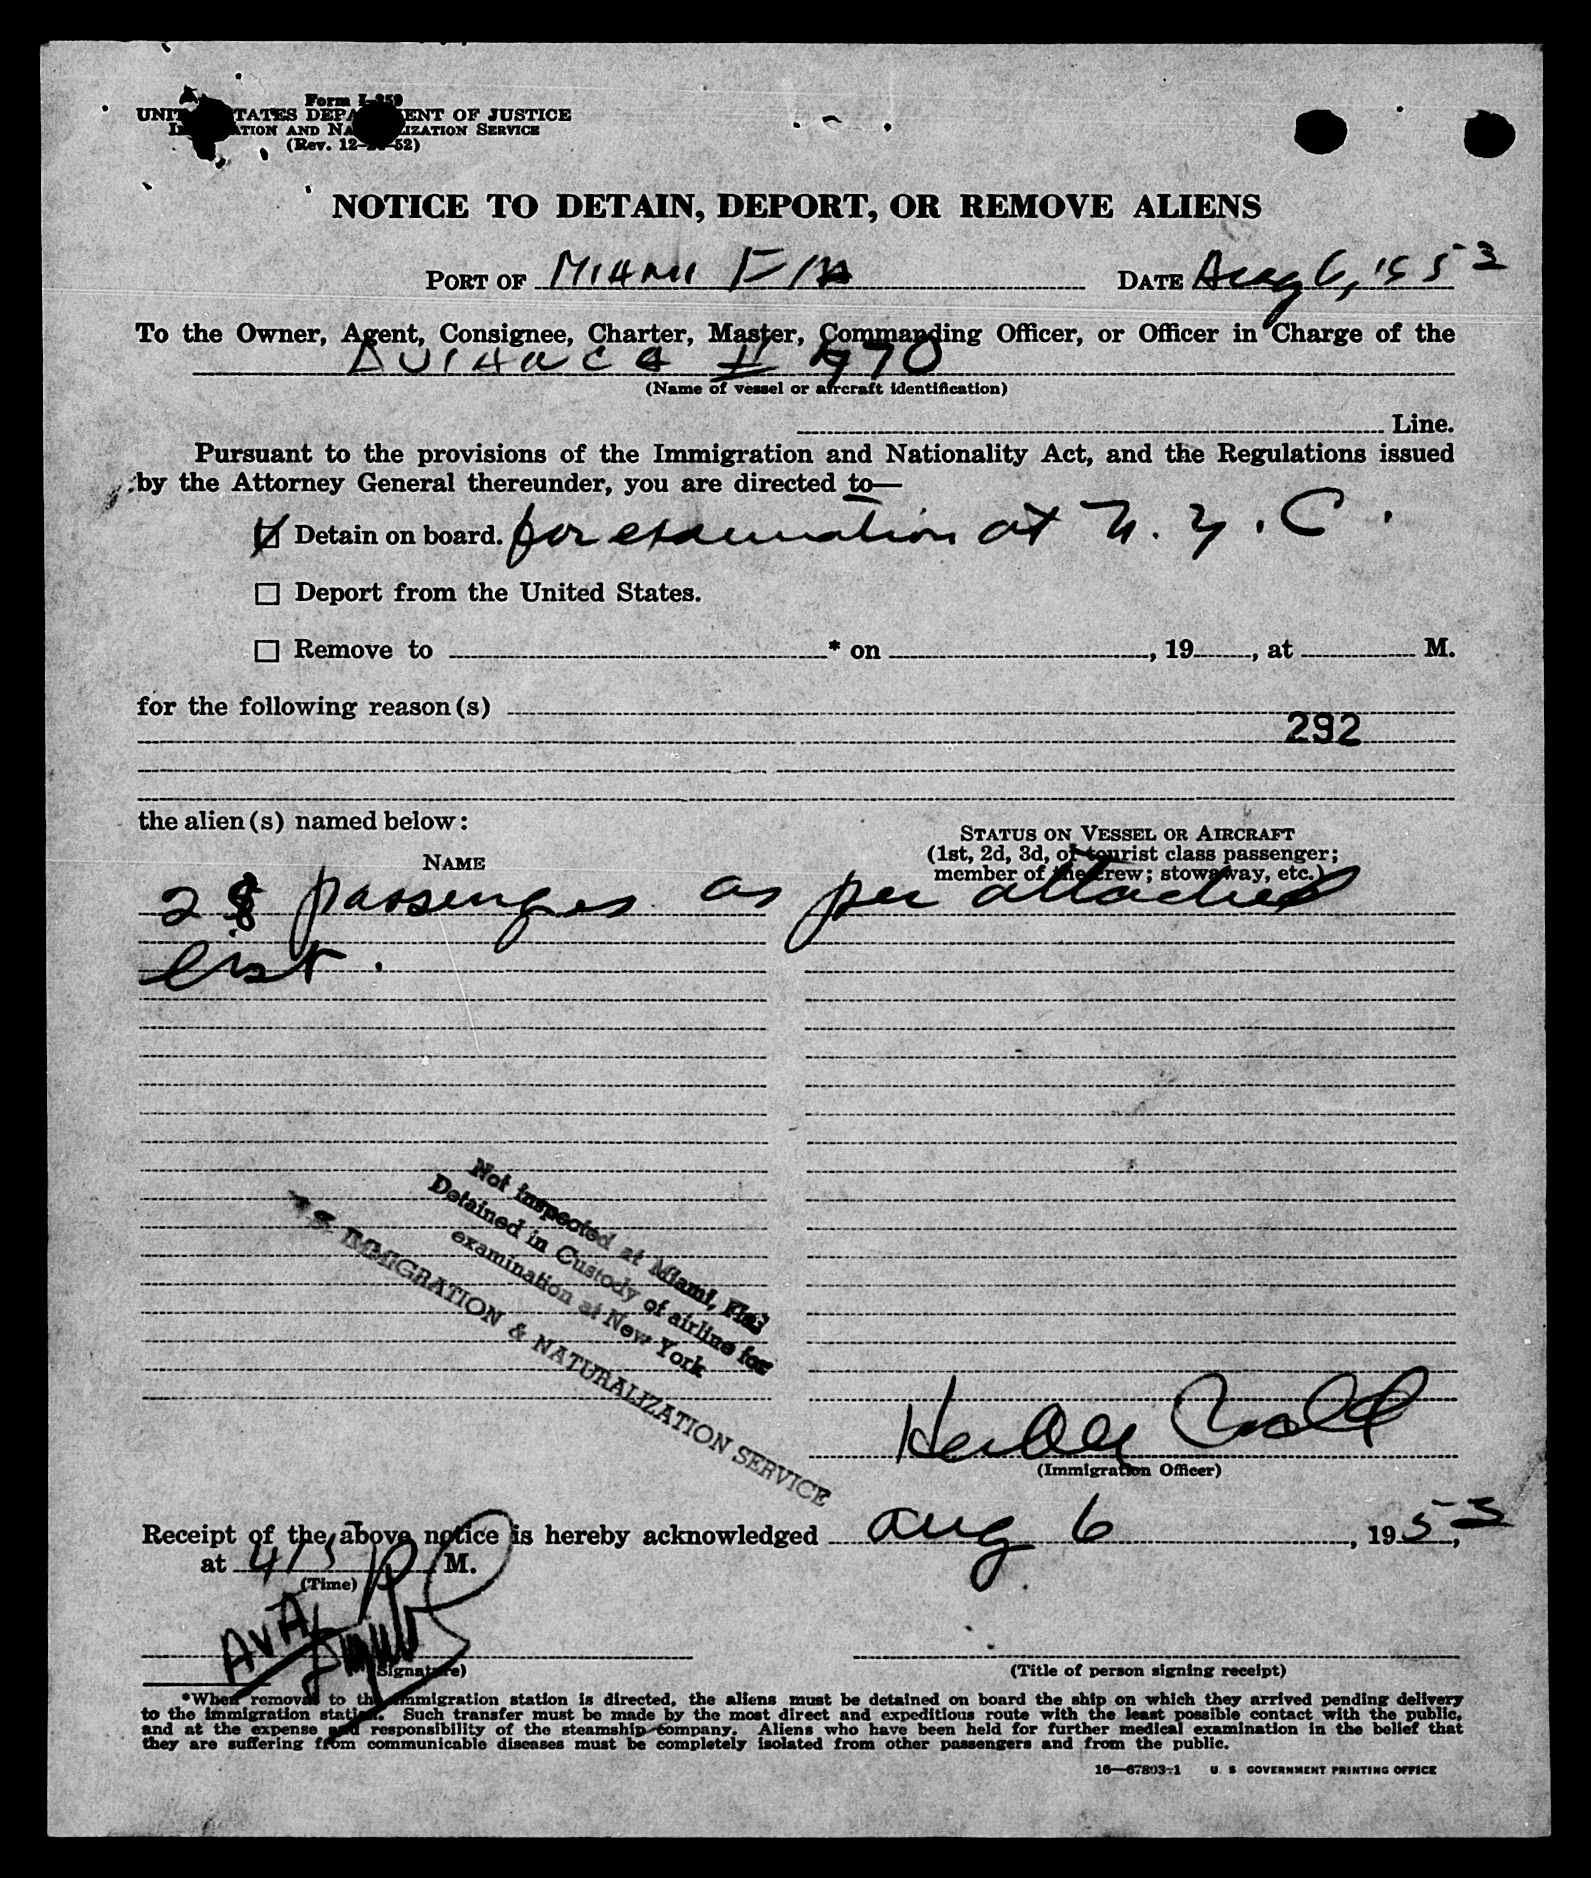 Form I-259
UNITED STATES DEPARTMENT OF JUSTICE
IMMIGRATION AND NATURALIZATION SERVICE
(Rev. 12-52)
NOTICE TO DETAIN, DEPORT, OR REMOVE ALIENS
PORT OF Miami Fla DATE Aug 6, 1953
To the Owner, Agent, Consignee, Charter, Master, Commanding Officer, or Officer in Charge of the
Avianca # 970
(Name of vessel or aircraft identification)
Line.
Pursuant to the provisions of the Immigration and Nationality Act, and the Regulations issued
by the Attorney General thereunder, you are directed to—
Detain on board. for examination at N.Y.C.
☐ Deport from the United States.
☐ Remove to * on , 19 , at M.
for the following reason(s)
292
the alien(s) named below:
NAME
STATUS ON VESSEL OR AIRCRAFT
(1st, 2d, 3d, or tourist class passenger;
member of the crew; stowaway, etc.)
28 passengers as per attached
list.
Not inspected at Miami, Fla.
Detained in Custody of airline for
examination at New York
U. S. IMMIGRATION & NATURALIZATION SERVICE
(Immigration Officer)
Receipt of the above notice is hereby acknowledged Aug 6, 1953,
at 415 P M.
(Time)
(Signature)
(Title of person signing receipt)
*When removal to the immigration station is directed, the aliens must be detained on board the ship on which they arrived pending delivery
to the immigration station. Such transfer must be made by the most direct and expeditious route with the least possible contact with the public,
and at the expense and responsibility of the steamship company. Aliens who have been held for further medical examination in the belief that
they are suffering from communicable diseases must be completely isolated from other passengers and from the public.
16—67803-1 U. S. GOVERNMENT PRINTING OFFICE